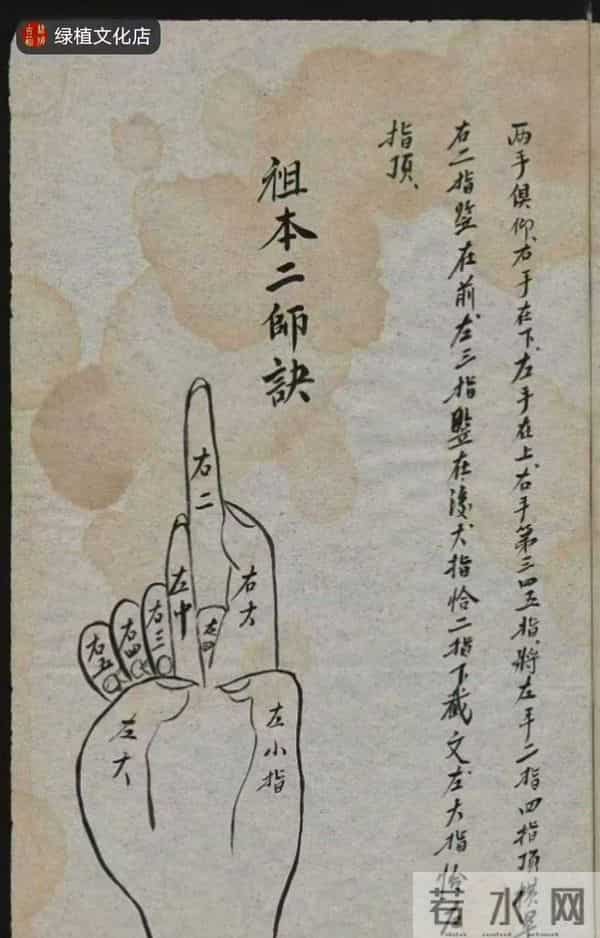 绿植文化店
两手俱仰右手在下左手在上右手第三四五指將左手二指四指頂
右二指竪在前左三指竪在後大指恰二指下截文左大指
指頂
祖本二師訣
右二
右大
左中
左四
右三
右四
右五
左大
左小指
若水网